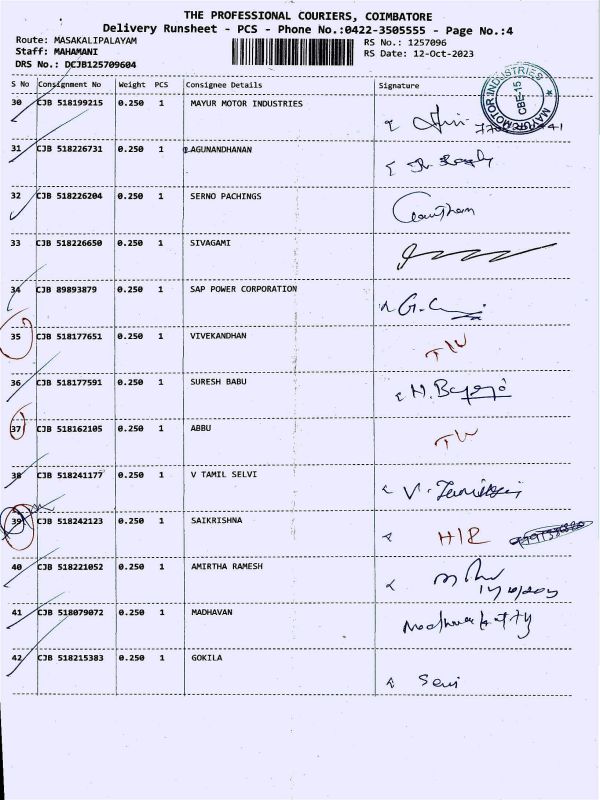 THE PROFESSIONAL COURIERS, COIMBATORE
Delivery Runsheet - PCS - Phone No.:0422-3505555 - Page No.:4
Route: MASAKALIPALAYAM
RS No.: 1257096
Staff: MAHAMANI
RS Date: 12-Oct-2023
DRS No.: DCJB125709604
S No Consignment No Weight PCS Consignee Details Signature
MAYUR MOTOR INDUSTRIES CBE-15
30 CJB 518199215 0.250 1 MAYUR MOTOR INDUSTRIES
31 CJB 518226731 0.250 1 LAGUNANDHANAN
32 CJB 518226204 0.250 1 SERNO PACHINGS Gowtham
33 CJB 518226650 0.250 1 SIVAGAMI
34 CJB 89893879 0.250 1 SAP POWER CORPORATION
35 CJB 518177651 0.250 1 VIVEKANDHAN
36 CJB 518177591 0.250 1 SURESH BABU
37 CJB 518162105 0.250 1 ABBU
38 CJB 518241177 0.250 1 V TAMIL SELVI
39 CJB 518242123 0.250 1 SAIKRISHNA
40 CJB 518221052 0.250 1 AMIRTHA RAMESH
41 CJB 518079072 0.250 1 MADHAVAN
42 CJB 518215383 0.250 1 GOKILA